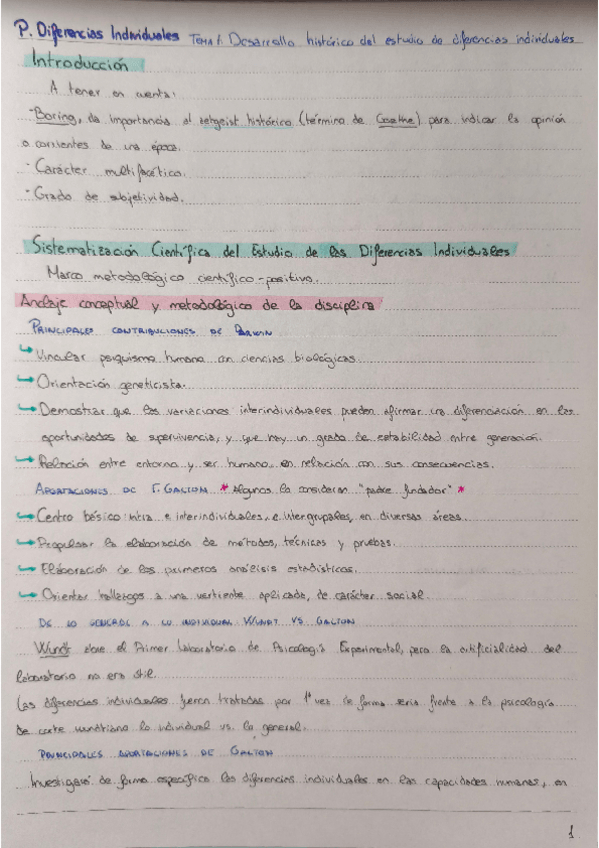 P. Diferencias Individuales TEMA 1: Desarrollo histórico del estudio de diferencias individuales
Introducción
A tener en cuenta:
-Boring, da importancia al zeitgeist histórico (término de Goethe) para indicar la opinión
o corrientes de una época.
- Carácter multifacético.
- Grado de subjetividad.
Sistematización Científica del Estudio de las Diferencias Individuales
Marco metodológico científico-positivo.
Anclaje conceptual y metodológico de la disciplina
PRINCIPALES CONTRIBUCIONES DE DARWIN
→ Vincular psiquismo humano con ciencias biológicas.
→ Orientación geneticista.
→ Demostrar que las variaciones interindividuales pueden afirmar una diferenciación en las
oportunidades de supervivencia, y que hay un grado de estabilidad entre generación.
→ Relación entre entorno y ser humano, en relación con sus consecuencias.
APORTACIONES DE F. GALTON * Algunos lo consideran "padre fundador" *
→ Centro básico intra e interindividuales, e intergrupales, en diversas áreas.
→ Propulsar la elaboración de métodos, técnicas y pruebas.
→ Elaboración de los primeros análisis estadísticos.
→ Orientar hallazgos a una vertiente aplicada, de carácter social.
DE LO GENERAL A LO INDIVIDUAL WUNDT VS GALTON
Wundt abre el Primer Laboratorio de Psicología Experimental, pero la artificialidad del
laboratorio no era útil.
Las diferencias individuales fueron tratadas por 1ª vez de forma seria frente a la psicología
de corte wundtiana lo individual vs. lo general.
PRINCIPALES APORTACIONES DE GALTON
Investigasi de forma específica las diferencias individuales en las capacidades humanas, en
1